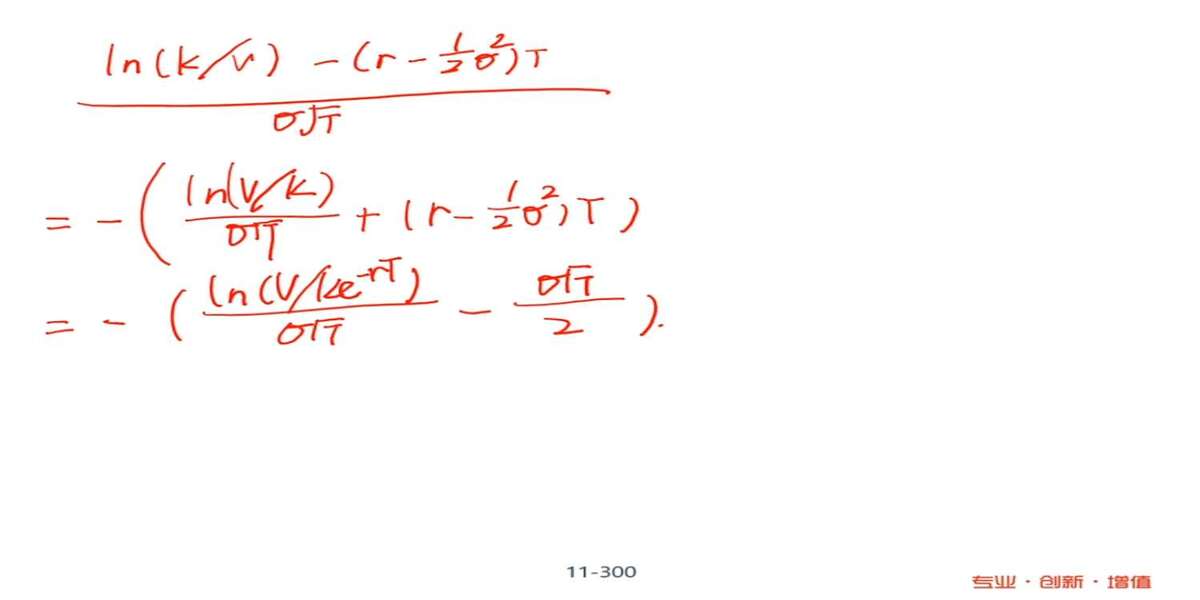 ln(k/v) - (r - 1/2 σ²)T
σ√T
= - ( ln(V/k) / σ√T + (r - 1/2 σ²)T )
= - ( ln(V/ke^-rT) / σ√T - σ√T / 2 ).
11-300
专业·创新·增值